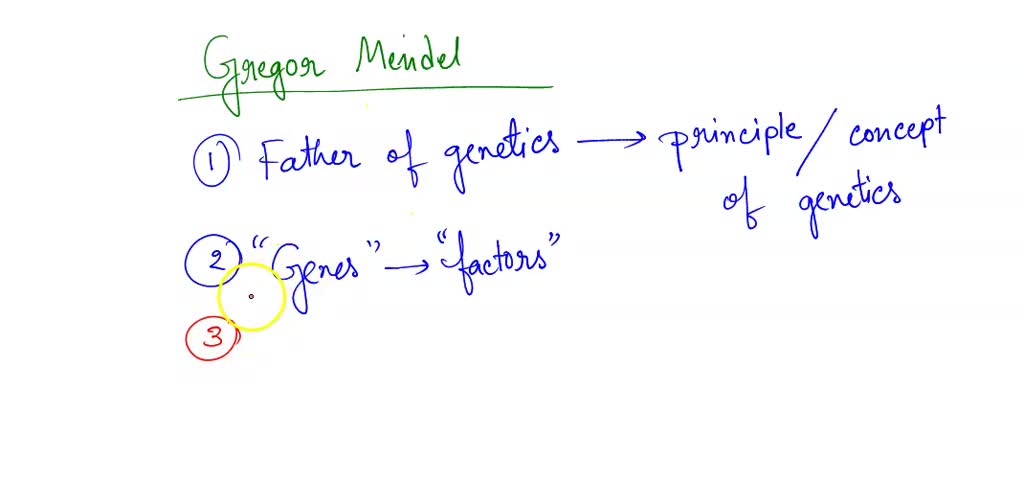 Gregor Mendel
1 Father of genetics → principle / concept
of genetics
2 "Genes" → "factors"
3